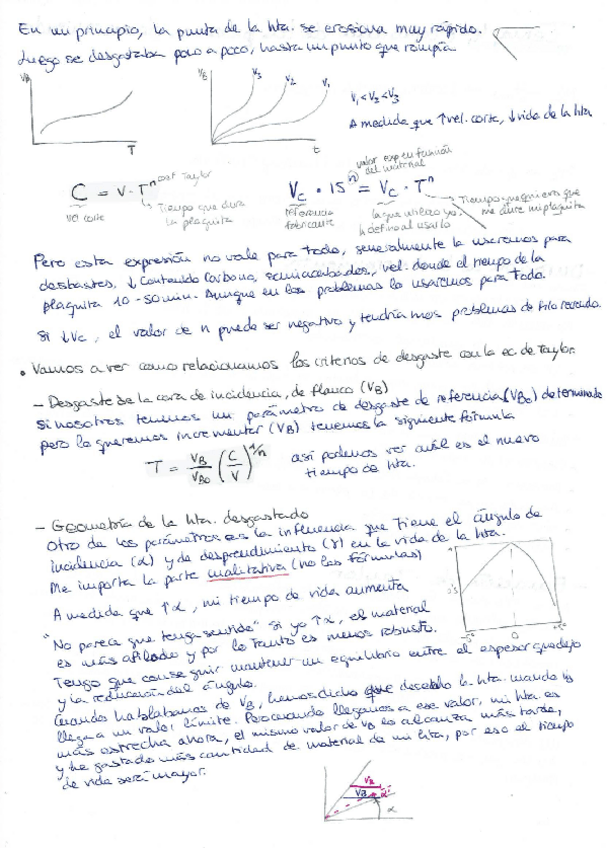 En un principio, la punta de la hta. se erosiona muy rápido.
Luego se desgastaba poco a poco, hasta un punto que rompía
VB
T
VB
V3
V2
V1
t
V1 < V2 < V3
A medida que ↑ vel. corte, ↓ vida de la hta
C = V · T^n
coef Taylor
vel corte
Tiempo que dura
la plaquita
Vc · 15^n = Vc · T^n
valor exp en función
del material
referencia
fabricante
la que utilizo yo,
la defino al usarlo
Tiempo que quiero que
me dure mi plaquita
Pero esta expresión no vale para todo, generalmente la usaremos para
desbastes, ↓ contenido carbono, semiacabados, vel. donde el tiempo de la
plaquita 10 - 50 min. Aunque en los problemas lo usaremos para todo.
Si ↓ Vc, el valor de n puede ser negativo y tendríamos problemas de filo recrecido.
• Vamos a ver como relacionamos los criterios de desgaste con la ec. de Taylor.
- Desgaste de la cara de incidencia, de flanco (VB)
Si nosotros tenemos un parámetro de desgaste de referencia (VBo) determinado
pero lo queremos incrementar (VB) tenemos la siguiente fórmula
T = VB/VBo (C/V)^1/n
así podemos ver cuál es el nuevo
tiempo de hta.
- Geometría de la hta. desgastado
Otro de los parámetros es la influencia que tiene el ángulo de
incidencia (α) y de desprendimiento (γ) en la vida de la hta.
Me importa la parte cualitativa (no las fórmulas)
A medida que ↑α, mi tiempo de vida aumenta
0
"No parece que tenga sentido" si yo ↑α, el material
es más afilado y por lo tanto es menos robusto.
Tengo que conseguir mantener un equilibrio entre el espesor que dejo
y la reducción del ángulo.
Cuando hablábamos de VB, hemos dicho que desecho la hta. cuando VB
llega a un valor límite. Pero cuando llegamos a ese valor, mi hta. es
más estrecha ahora, el mismo valor de VB lo alcanza más tarde,
y he gastado más cantidad de material de mi hta, por eso el tiempo
de vida será mayor.
VB
VB
α'
α